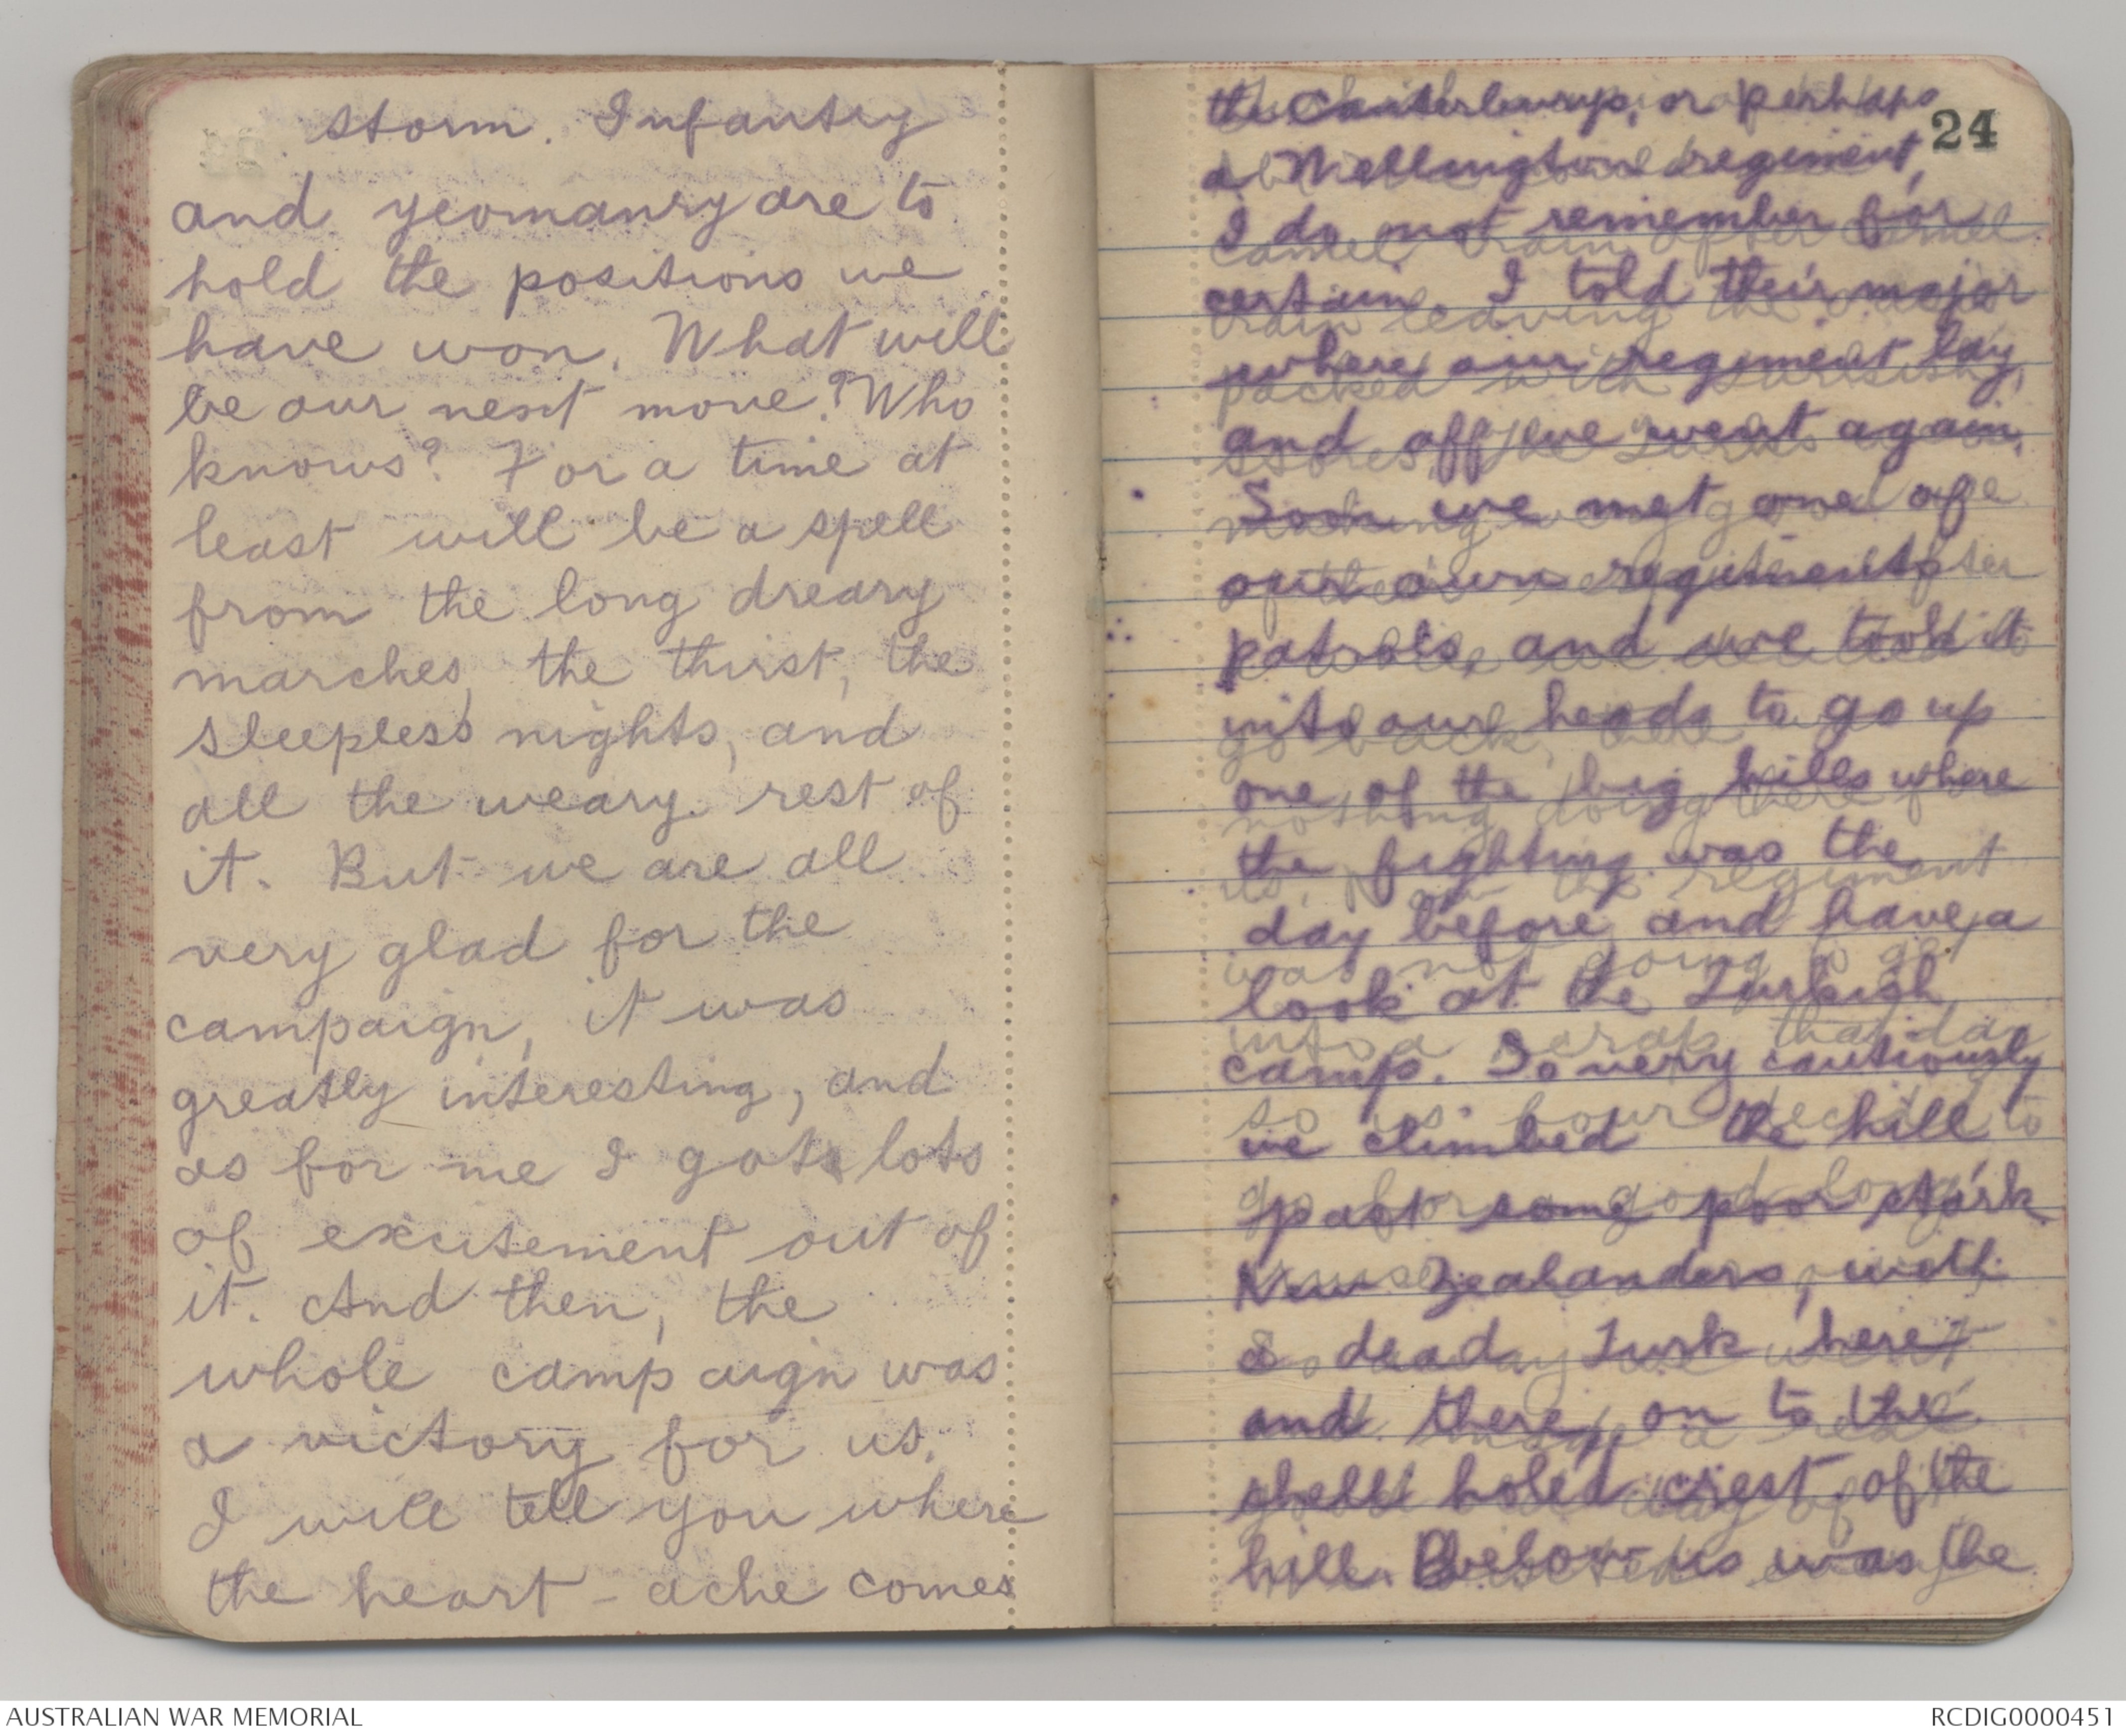 storm. Infantry
and yeomanry are to
hold the positions we
have won. What will
be our next move? Who
knows? For a time at
least will be a spell
from the long dreary
marches, the thirst, the
sleepless nights, and
all the weary rest of
it. But we are all
very glad for the
campaign, it was
greatly interesting, and
as for me I got lots
of excitement out of
it. And then, the
whole campaign was
a victory for us.
I will tell you where
the heart-ache comes
24
the Canterburys, or perhaps
a Wellington regiment,
I do not remember for
certain. I told their major
where our regiment lay,
and off we went again.
Soon we met one of
our own regiments
patrols, and we took it
into our heads to go up
one of the big hills where
the fighting was the
day before and have a
look at the Turkish
camp. So very cautiously
we climbed the hill
past some poor stark
New Zealanders, with
a dead Turk here
and there, on to the
shell holed crest of the
hill. Below us was the
AUSTRALIAN WAR MEMORIAL
RCDIG0000451